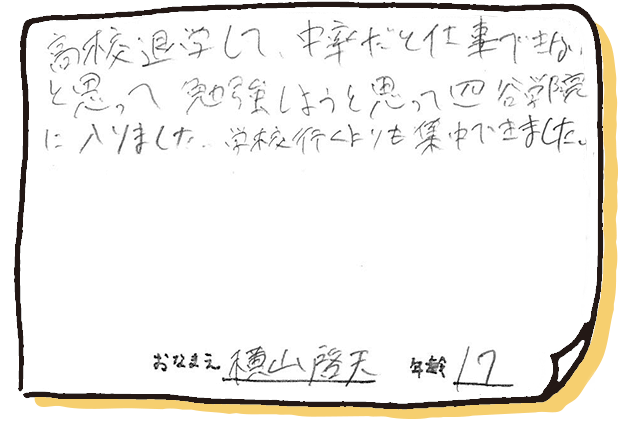 高校退学して、中卒だと仕事できない
と思って勉強しようと思って四谷学院
に入りました。学校行くよりも集中できました。
おなまえ 横山啓天 年齢 17